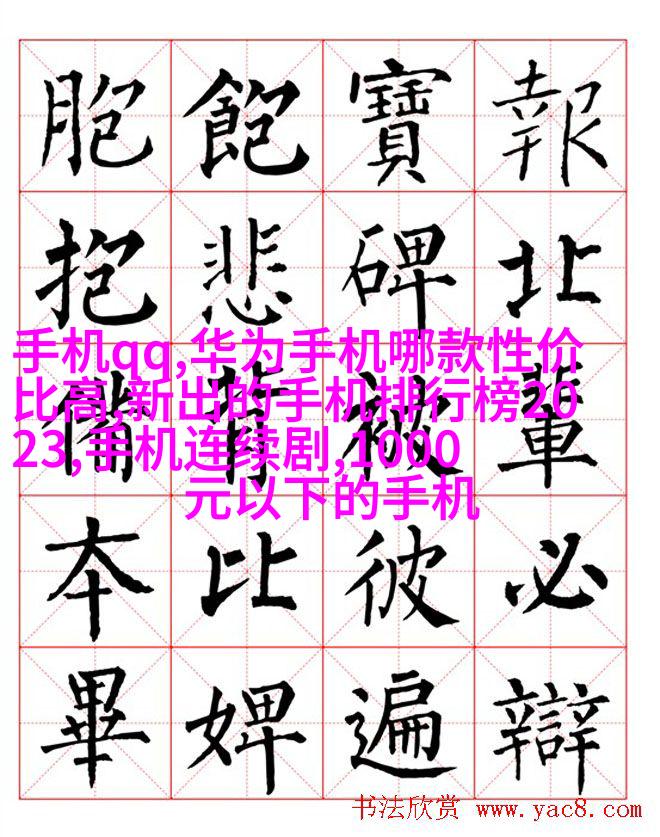 胞飽寶報
抱悲碑北
手机qq,华为手机哪款性价
比高,新出的手机排行榜20
23,手机连续剧,1000
元以下的手机
備背被輩
本比彼必
畢婢遍辯
书法欣赏 www.yac8.com